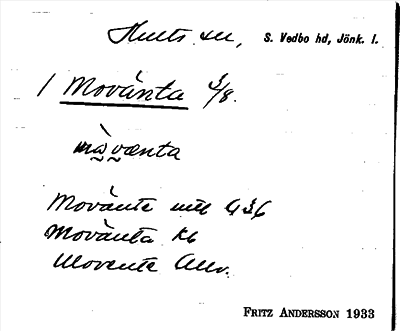 Hults sn, S. Vedbo hd, Jönk. l.
1 Movänta 3/8.
mòvænta
Movänte mtl G36
Movänta Kb
Movente Allv.
FRITZ ANDERSSON 1933